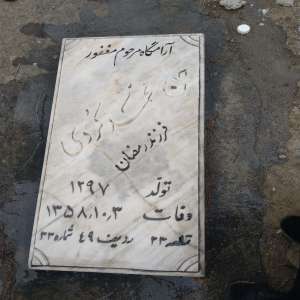 آرامگاه مرحوم مغفور
فرزند رمضان
تولد ۱۲۹۷
وفات ۱۳۵۸،۱۰،۳
قطعه ۲۳ ردیف ۴۹ شماره ۲۳